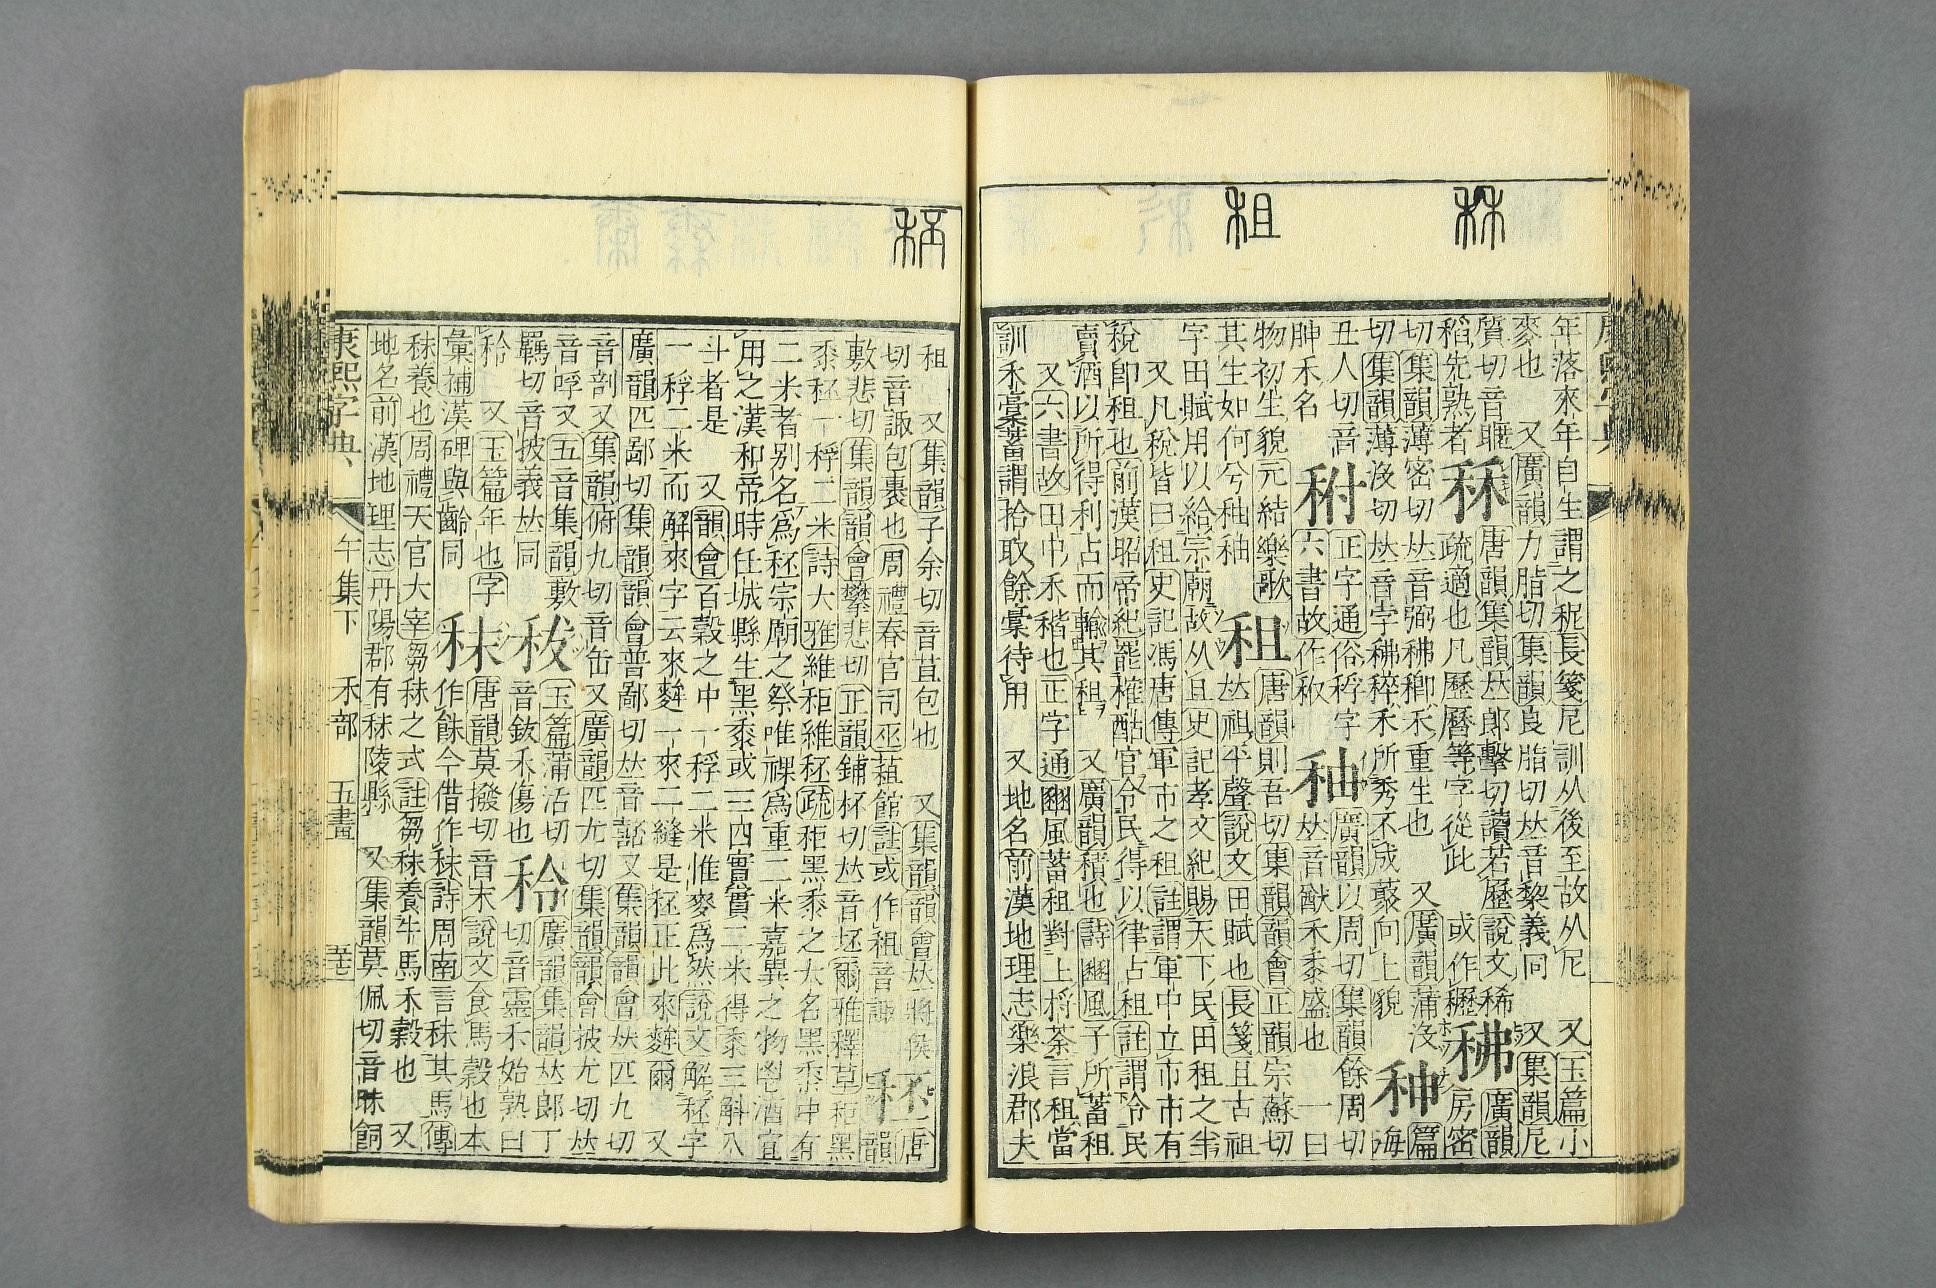 秝
租
年落來年自生謂之秜長箋尼訓从後至故从尼　又玉篇小
麥也　又廣韻力脂切集韻良脂切𠀤音黎義同　又集韻尼
質切音暱
稻先熟者
秝
唐韻集韻𠀤郎擊切讀若歷說文稀
疏適也凡歷曆等字從此　或作䆁
䄶
廣韻
房密
切集韻薄密切𠀤音弼䄶䅐禾重生也　又廣韻蒲没
切集韻薄没切𠀤音孛䄶稡禾所秀不成䕺向上貌
䄅
篇
海
丑人切音
䄅禾名
秿
正字通俗稃字
六書故作
秞
廣韻以周切集韻餘周切
𠀤音猷禾黍盛也　一曰
物初生貌元結樂歌
其生如何兮秞秞
租
唐韻則吾切集韻韻會正韻宗蘇切
𠀤祖平聲說文田賦也長箋且古祖
字田賦用以給宗廟故从且史記孝文紀賜天下民田租之半
又凡稅皆曰租史記馮唐傳軍市之租註謂軍中立市市有
稅卽租也前漢昭帝紀罷榷酤官令民得以律占租註謂令民
賣酒以所得利占而輸其租　又廣韻積也詩豳風予所蓄租
又六書故田中禾稭也正字通豳風蓄租對上捋荼言租當
訓禾藁蓄謂拾取餘藁待用　又地名前漢地理志樂浪郡夫
租　又集韻子余切音苴包也　又集韻韻會𠀤將侯
切音諏包裹也周禮春官司巫蒩館註或作租音諏
秠
唐
韻
敷悲切集韻韻會攀悲切正韻鋪杯切𠀤音坯爾雅釋草秠黑
黍秠一稃二米詩大雅維秬維秠疏秬黑黍之大名黑黍中有
二米者别名爲秠宗廟之祭唯祼爲重二米嘉異之物鬯酒宜
用之漢和帝時任城縣生黑黍或三四實實二米得黍三斛八
斗者是　又韻會百穀之中一稃二米惟麥爲然說文解秠字
一稃二米而解來字云來麰一來二縫是秠正此來麰爾　又
廣韻匹鄙切集韻韻會普鄙切𠀤音嚭又集韻韻會𠀤匹九切
音剖又集韻俯九切音缶又廣韻匹尤切集韻韻會披尤切𠀤
音呼又五音集韻敷
羈切音披義𠀤同
秡
玉篇蒲活切
音鈸禾傷也
秢
廣韻集韻𠀤郎丁
切音靈禾始熟曰
秢　又玉篇年也字
彙補漢碑與齡同
秣
唐韻莫撥切音末說文食馬穀也本
作䬴今借作秣詩周南言秣其馬傳
秣養也周禮天官大宰芻秣之式註芻秣養牛馬禾穀也　又
地名前漢地理志丹陽郡有秣陵縣　又集韻莫佩切音昧飼
康熙字典　午集下　禾部　五畫